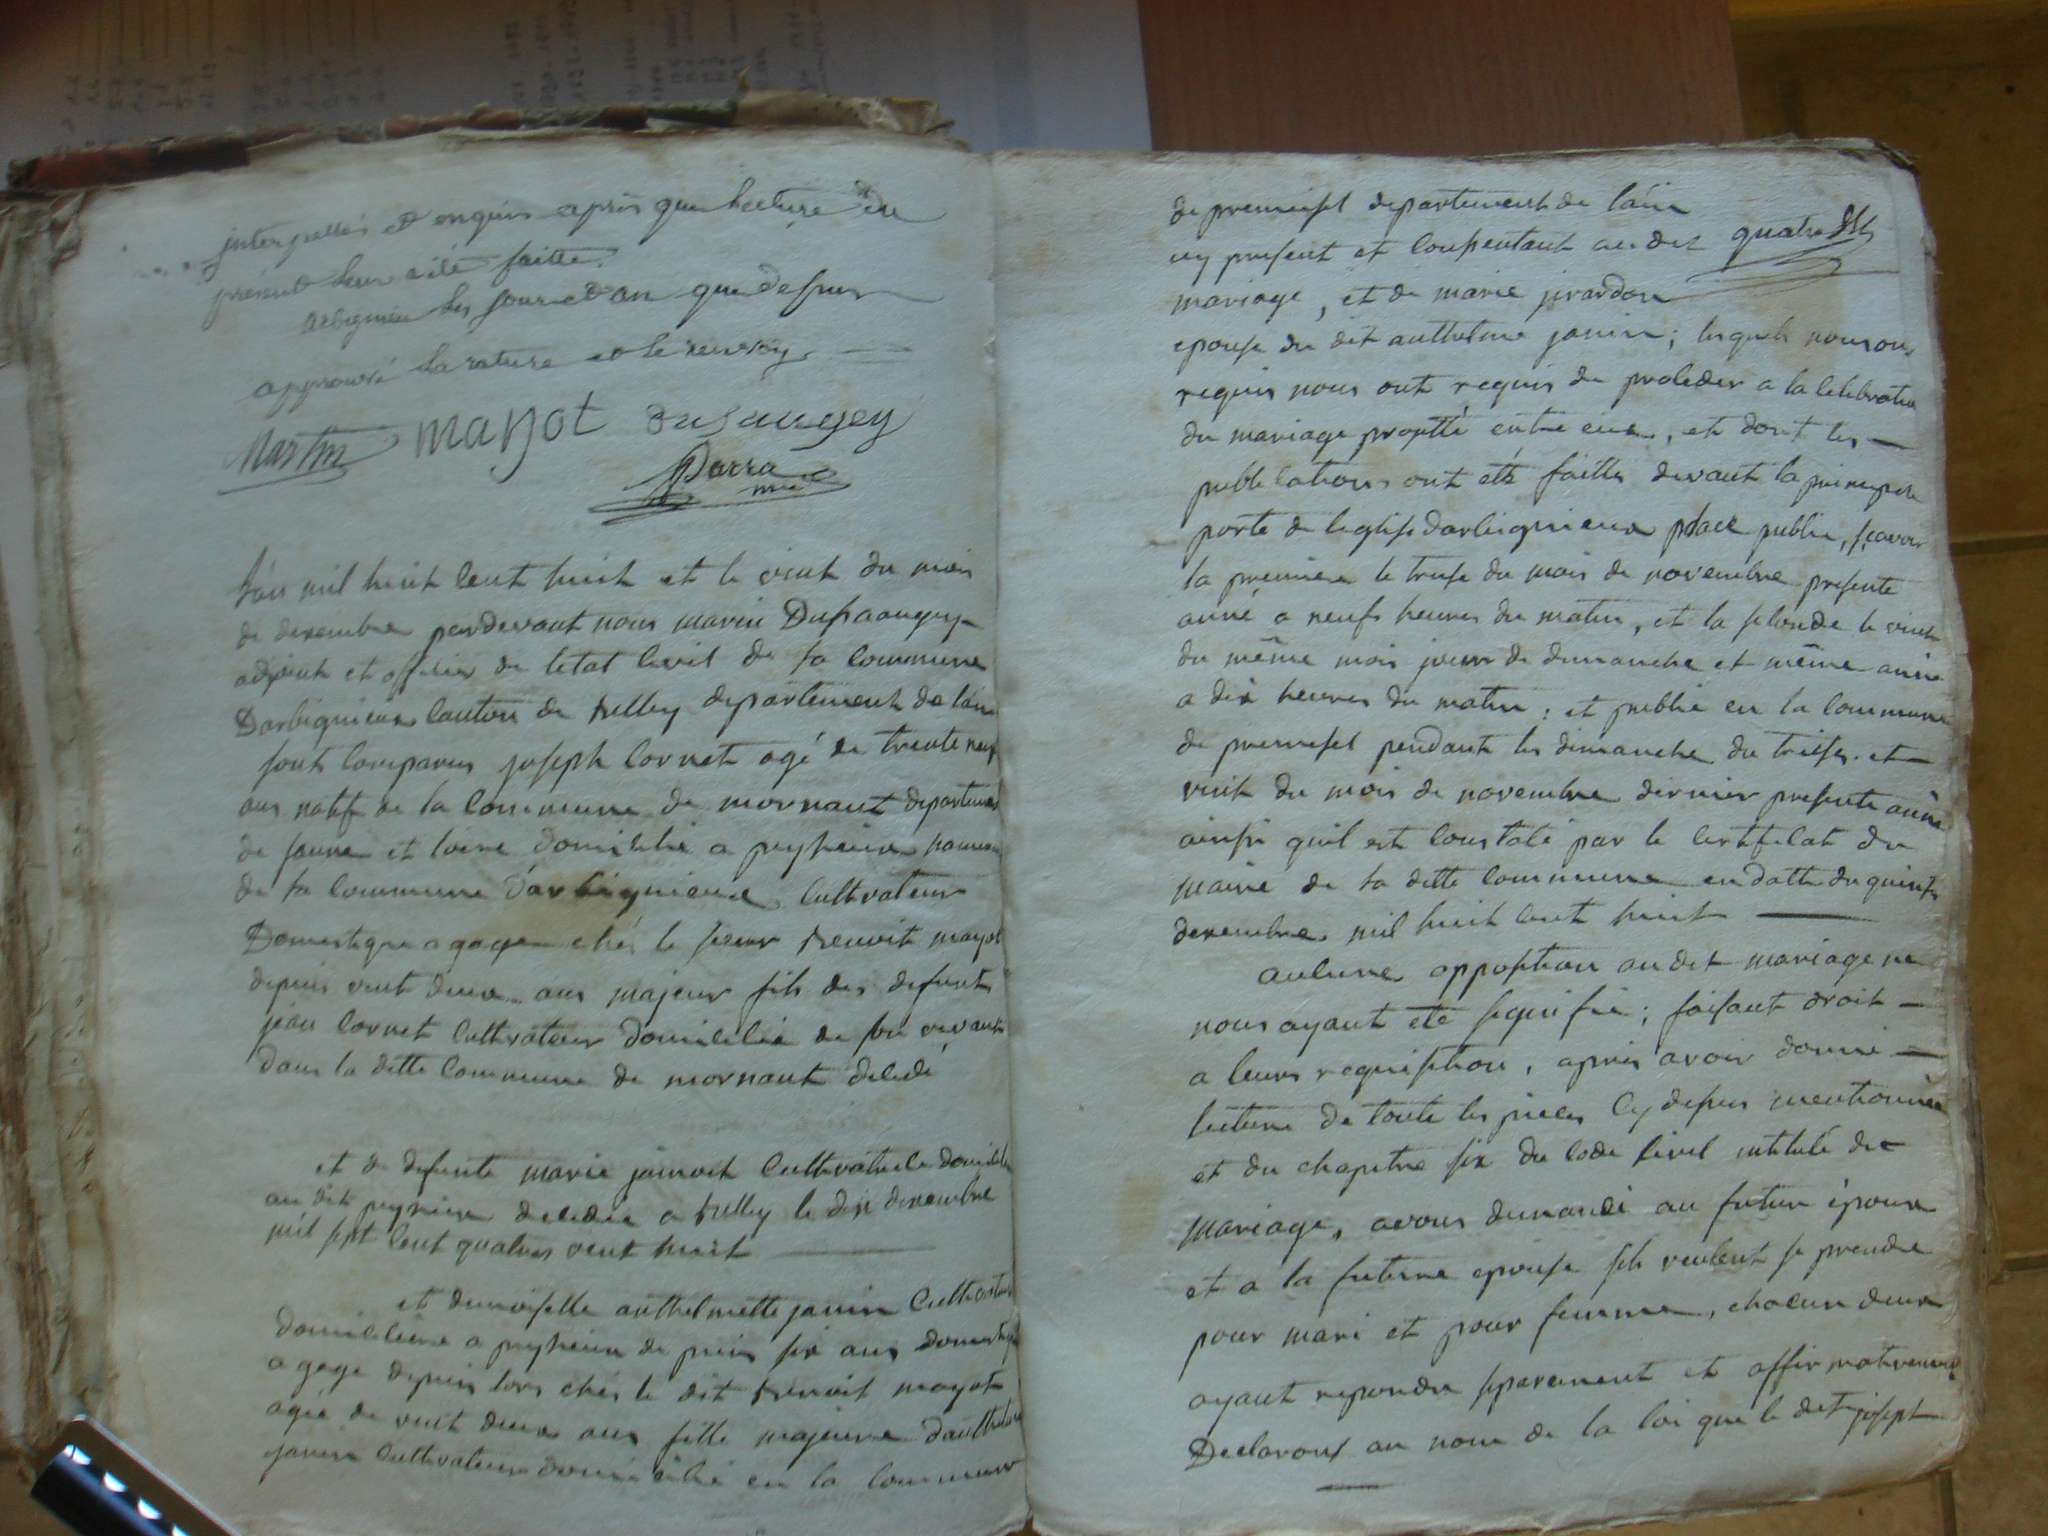 interpellés et enquis après que lecture du
présent leur a été faitte.
arbignieu les jour et an que dessus
approuvé la rature et le renvoy
Martin mayot dusaugey
Parra
L'an mil huit cent huit et le vint du mois
de decembre pardevant nous marin Dussaugey
adjoint et officier de letat civil de la commune
Darbignieux canton de belley departement de lain
sont comparus joseph Cornet agé de trente neuf
ans natif de la commune de mornant departement
de saune et loire domicilié a peyzieux hameau
de la commune d'arbignieux cultivateur
Domestique a gage chés le sieur benoit mayot
depuis vint deux ans majeur fils des defunts
jean Cornet cultivateur domicilié de son vivant
dans la ditte commune de mornant decedé
et de defunte marie jainvoit cultivatrice domiciliée
au dit peyzieux decedée a belley le dix decembre
mil sept cent quatres vint huit
et demoiselle anthelmette janin cultivatrice
domiciliée a peyzieux de puis six ans domestique
a gage depuis lors chés le dit benoit mayot
agée de vint deux ans fille majeure d'anthelme
janin cultivateur domicilié en la commune
de premeisel departement de l'ain
icy present et consentant au dit quatre
mariage, et de marie
epouse du dit anthelme janin; lesquels
requis nous ont requis de proceder a la celebration
du mariage projetté entre eux, et dont les
publications ont été faittes devant la principale
porte de leglise darbignieux place public, sçavoir
la premiere le treise du mois de novembre presente
anné a neufs heures du matin, et la seconde le vint
du même mois jour de dimanche et même année
a dix heures du matin; et publié en la commune
de premeisel pendant les dimanche du treises et
vint du mois de novembre dernier presente année
ainsi quil est constaté par le certificat du
maire de la ditte commune en datte du quinze
decembre mil huit cent huit
aucune oppo­sition au dit mariage ne
nous ayant été signifié; faisant droit
a leurs requisition, apres avoir donné
lecture de toute les pieces cy dessus mentionnée
et du chapitre six du code civil intitulé du
mariage, avons demandé au futur époux
et a la future epouse sils veulent se prendre
pour mari et pour femme, chacun deux
ayant repondu separement et affirmativement
Declarons au nom de la loi que le dit joseph